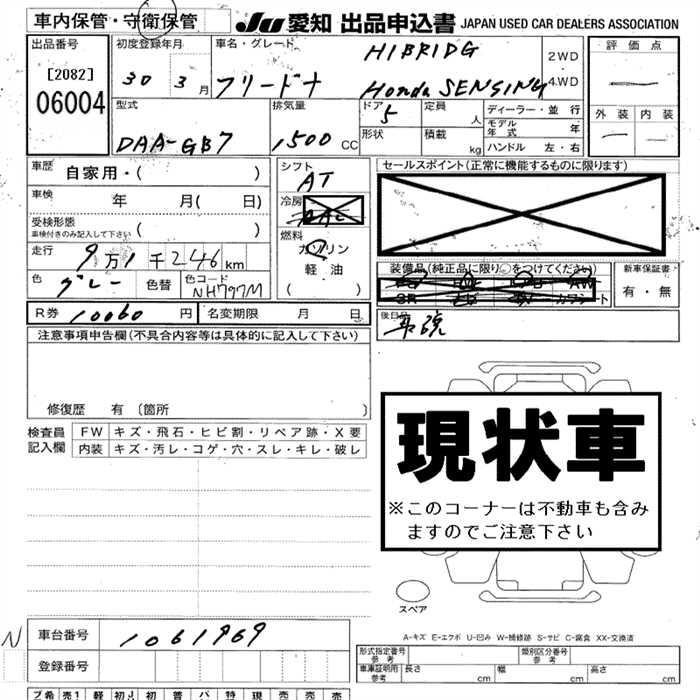 車内保管・守衛保管 JU 愛知 出品申込書 JAPAN USED CAR DEALERS ASSOCIATION
出品番号 初度登録年月 車名・グレード 評価点
[2082] 30 3月 フリード+ HIBRIDG 2WD
06004 Honda SENSING 4WD
外装 内装
型式 排気量 ドア 5 定員 人 ディーラー・並行
DAA-GB7 1500 CC 形状 積載 kg モデル年式 年
ハンドル 左・右
車歴 自家用・( ) シフト AT セールスポイント(正常に機能するものに限ります)
車検 年 月( 日) 冷房
受検形態 ( )
車検付きのみ記入して下さい
燃料
走行 9万1千246km ガソリン
軽油
( )
装備品(純正品に限り○をつけてください) 新車保証書
有・無
色 グレー 色替 色コード NH797M
R券 10060 円 名変期限 月 日 後日品 車検
注意事項申告欄(不具合内容等は具体的に記入して下さい)
修復歴 有 〔箇所 〕
検査員 FW キズ・飛石・ヒビ割・リペア跡・X要
記入欄 内装 キズ・汚レ・コゲ・穴・スレ・キレ・破レ
現状車
※このコーナーは不動車も含み
ますのでご注意下さい
スペア
A-キズ E-エクボ U-凹み W-補修跡 S-サビ C-腐食 XX-交換済
N 車台番号 1061969
登録番号
形式指定番号 参考 類別区分番号 参考
車庫証明用 参考 長さ cm 幅 cm 高さ cm